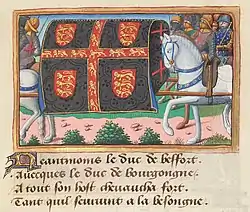 Neantmoins le duc de bessort.
Auecques le duc de bourgongne.
A tout son host cheuaucha fort.
Tant quil seuruint a la besongne.